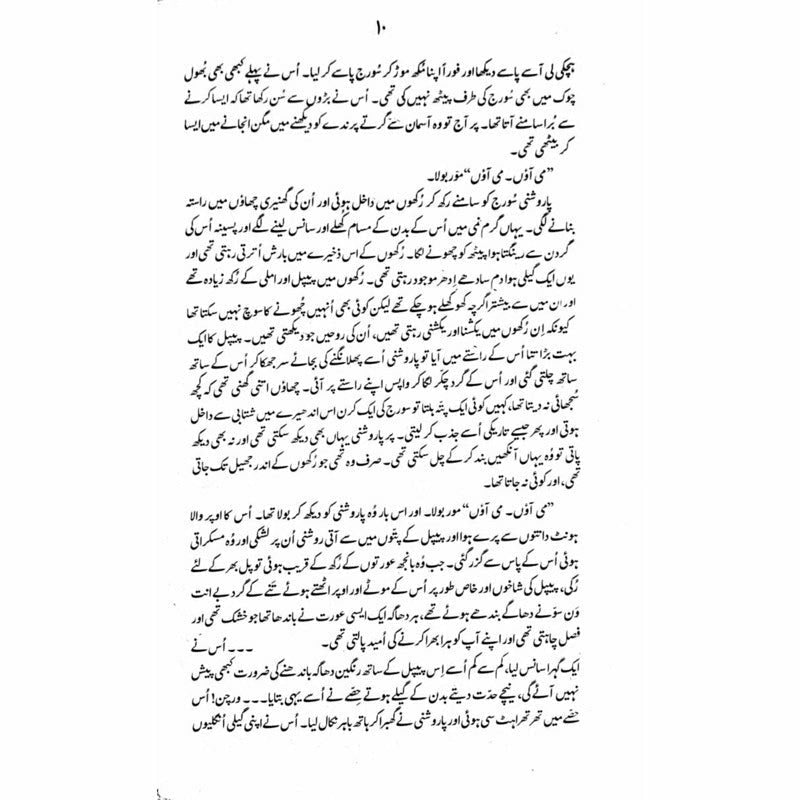 ۱۰
ہچکی لی آسے پاسے دیکھا اور فوراً اپنا مُکھ موڑ کر سُورج پاسے کر لیا۔ اُس نے پہلے کبھی بھی بُھول
چوک میں بھی سُورج کی طرف پیٹھ نہیں کی تھی۔ اُس نے بڑوں سے سُن رکھا تھا کہ ایسا کرنے
سے بُرا سامنے آتا تھا۔ پر آج تو وہ آسمان سے گرتے پرندے کو دیکھنے میں مگن انجانے میں ایسا
کر بیٹھی تھی۔
”می آؤں۔ می آؤں“ مور بولا۔
پاروشنی سُورج کو سامنے رکھ کر رُکھوں میں داخل ہوئی اور اُن کی گھنیری چھاؤں میں راستہ
بنانے لگی۔ یہاں گرم نمی میں اُس کے بدن کے مسام کُھلے اور سانس لینے لگے اور پسینہ اُس کی
گردن سے رینگتا ہوا پیٹھ کو چھونے لگا۔ رُکھوں کے اس ذخیرے میں بارش اُترتی رہتی تھی اور
یوں ایک گیلی ہوا دم سادھے اِدھر موجود رہتی تھی۔ رُکھوں میں پیپل اور املی کے رُکھ زیادہ تھے
اور ان میں سے بیشتر اگرچہ کھوکھلے ہو چکے تھے لیکن کوئی بھی اُنہیں چُھونے کا سوچ نہیں سکتا تھا
کیونکہ اِن رُکھوں میں یکشنا اور یکشنی رہتی تھیں، اُن کی روحیں جو دیکھتی تھیں۔ پیپل کا ایک
بہت بڑا تنا اُس کے راستے میں آیا تو پاروشنی اُسے پھلانگنے کی بجائے سر جھکا کر اُس کے ساتھ
ساتھ چلتی گئی اور اُس کے گرد چکر لگا کر واپس اپنے راستے پر آئی۔ چھاؤں اتنی گھنی تھی کہ کچھ
سُجھائی نہ دیتا تھا، کہیں کوئی ایک پتّہ ہلتا تو سورج کی ایک کرن اس اندھیرے میں شتابی سے داخل
ہوتی اور پھر جیسے تاریکی اُسے جذب کر لیتی۔ پر پاروشنی یہاں بھی دیکھ سکتی تھی اور نہ بھی دیکھ
پاتی تو وُہ یہاں آنکھیں بند کر کے چل سکتی تھی۔ صرف وہ تھی جو رُکھوں کے اندر جھیل تک جاتی
تھی، اور کوئی نہ جاتا تھا۔
”می آؤں۔ می آؤں“ مور بولا۔ اور اس بار وُہ پاروشنی کو دیکھ کر بولا تھا۔ اُس کا اوپر والا
ہونٹ دانتوں سے پرے ہوا اور پیپل کے پتّوں میں سے آتی روشنی اُن پر لشکی اور وُہ مسکراتی
ہوئی اُس کے پاس سے گزر گئی۔ جب وُہ بانجھ عورتوں کے رُکھ کے قریب ہوئی تو پل بھر کے لئے
رُکی، پیپل کی شاخوں اور خاص طور پر اُس کے موٹے اور اوپر اٹھتے ہوئے تنے کے گرد بے انت
وَن سوَنے دھاگے بندھے ہوئے تھے، ہر دھاگہ ایک ایسی عورت نے باندھا تھا جو خشک تھی اور
فصل چاہتی تھی اور اپنے آپ کو ہرا بھرا کرنے کی اُمید پالتی تھی۔ ۔۔۔ اُس نے
ایک گہرا سانس لیا، کم سے کم اُسے اِس پیپل کے ساتھ رنگین دھاگہ باندھنے کی ضرورت کبھی پیش
نہیں آئے گی، نیچے حدّت دیتے بدن کے گیلے ہوتے حِصّے نے اُسے یہی بتایا۔۔۔ ورچن! اُس
حِصّے میں تھرتھراہٹ سی ہوئی اور پاروشنی نے گھبرا کر ہاتھ باہر نکال لیا۔ اُس نے اپنی گیلی اُنگلیوں